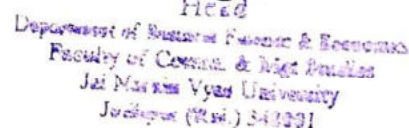 Head
Department of Business Finance & Economics
Faculty of Comm. & Mgt Studies
Jai Narain Vyas University
Jodhpur (Raj.) 342001